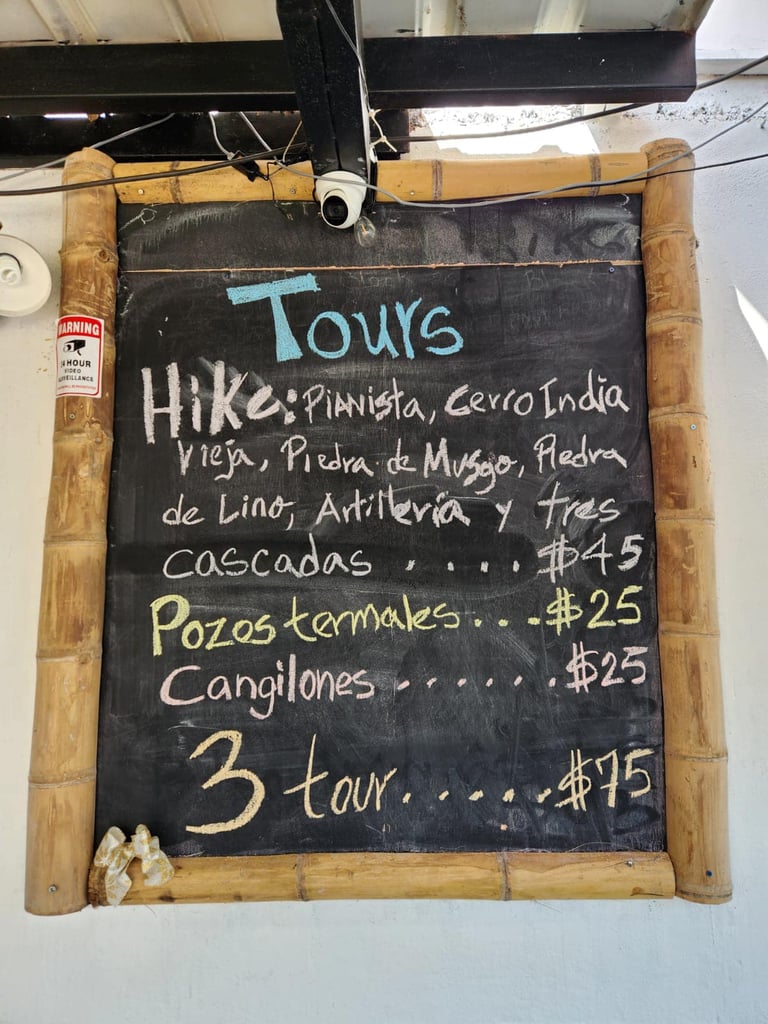 Tours
Hike: Pianista, Cerro India
Vieja, Piedra de Musgo, Piedra
de Lino, Artillería y tres
cascadas . . . . $45
Pozos termales . . . $25
Cangilones . . . . . . $25
3 tour . . . . . $75
WARNING
24 HOUR
VIDEO
SURVEILLANCE